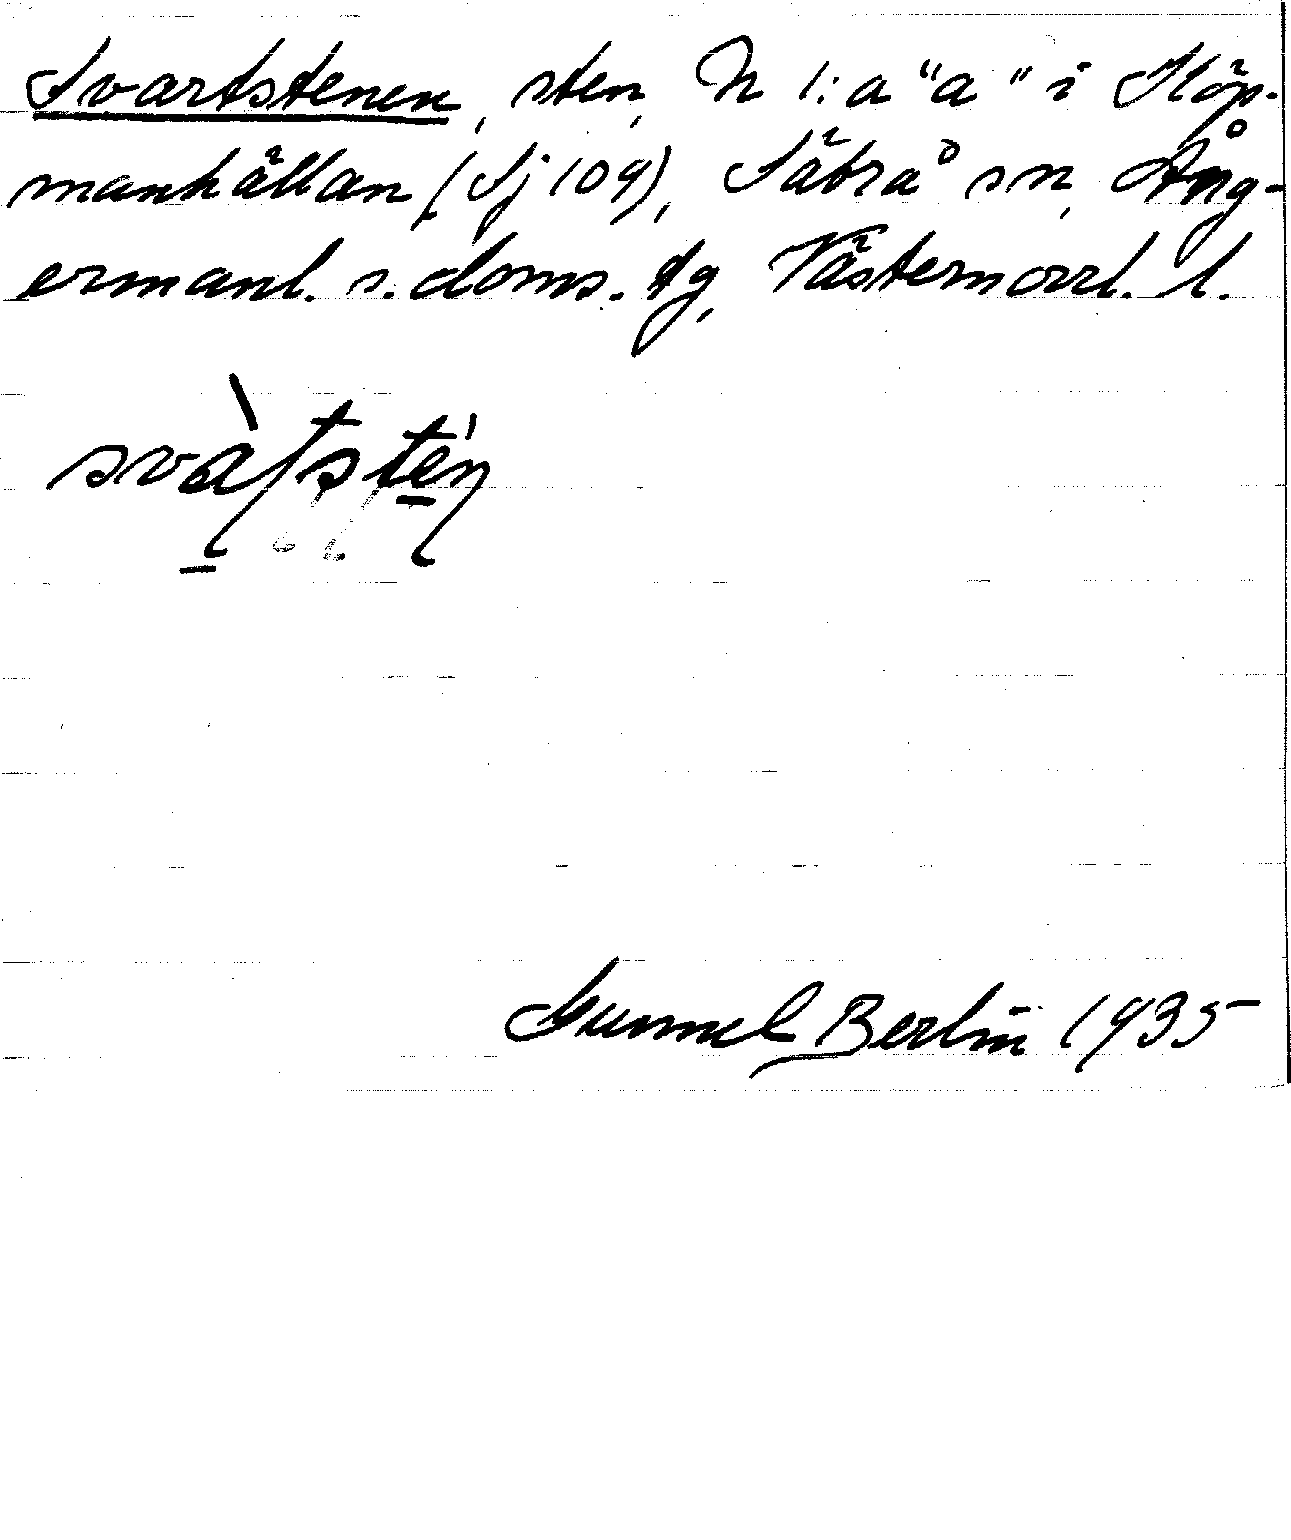 Svartstenen, sten, N 1:a "a" i Köp-
manhällan (Sj 109), Säbrå sn, Ång-
ermanl. s. doms. tg, Västernorrl. l.
Gunnel Berlin 1935